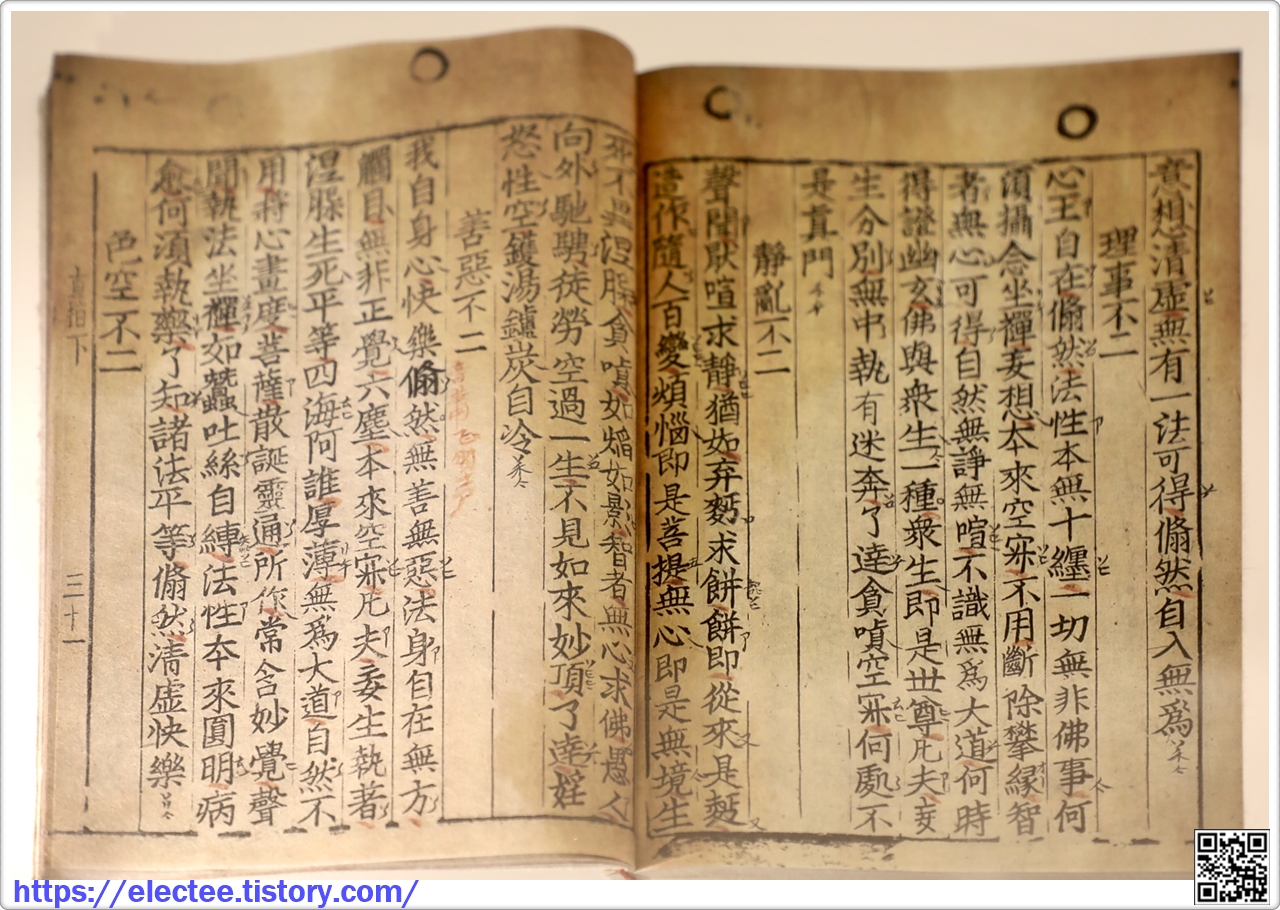 意想清虛無有一法可得翛然自入無爲
理事不二
心王自在翛然法性本無十纏一切無非佛事何
須攝念坐禪妄想本來空寂不用斷除攀緣智
者無心可得自然無諍無喧不識無爲大道何時
得證幽玄佛與衆生一種衆生即是世尊凡夫妄
生分別無中執有迷奔了達貪嗔空寂何處不
是眞門
靜亂不二
聲聞厭喧求靜猶如弃麪求餠餠即從來是麪
造作隨人百變煩惱即是菩提無心即是無境生
死不異涅槃貪嗔如焰如影智者無心求佛愚人
向外馳騁徒勞空過一生不見如來妙頂了達婬
怒性空鑊湯鑪炭自冷
善惡不二
我自身心快樂翛然無善無惡法身自在無方
觸目無非正覺六塵本來空寂凡夫妄生執著
涅槃生死平等四海阿誰厚薄無爲大道自然不
用將心畫度菩薩散誕靈通所作常含妙覺聲
聞執法坐禪如蠶吐絲自縛法性本來圓明病
愈何須執藥了知諸法平等翛然清虛快樂
色空不二
直指下
三十一
https://electee.tistory.com/